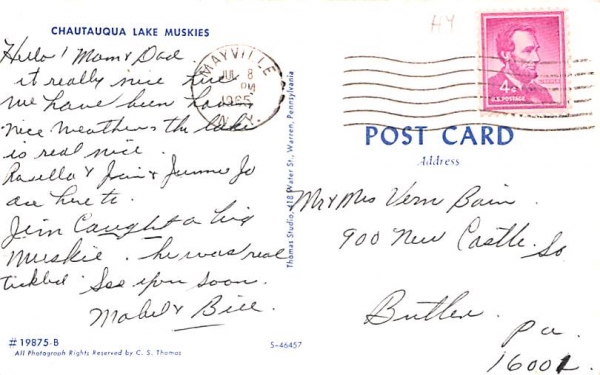 CHAUTAUQUA LAKE MUSKIES
Hello! Mom & Dad
it really nice time
we have been having
nice weather the lake
is real nice.
Rosella & Jim & Junnie Jo
are here to.
Jim Caught a big
Muskie. he was real
tickled. See you soon.
Mabel & Bill
#19875-B
All Photograph Rights Reserved by C. S. Thomas
Thomas Studio, 418 Water St., Warren, Pennsylvania
S-46457
HY
MAYVILLE
JUL 8
PM
1965
N.Y.
4¢
U.S. POSTAGE
POST CARD
Address
Mr & Mrs Vern Bain
900 New Castle So
Butler
Pa.
16001